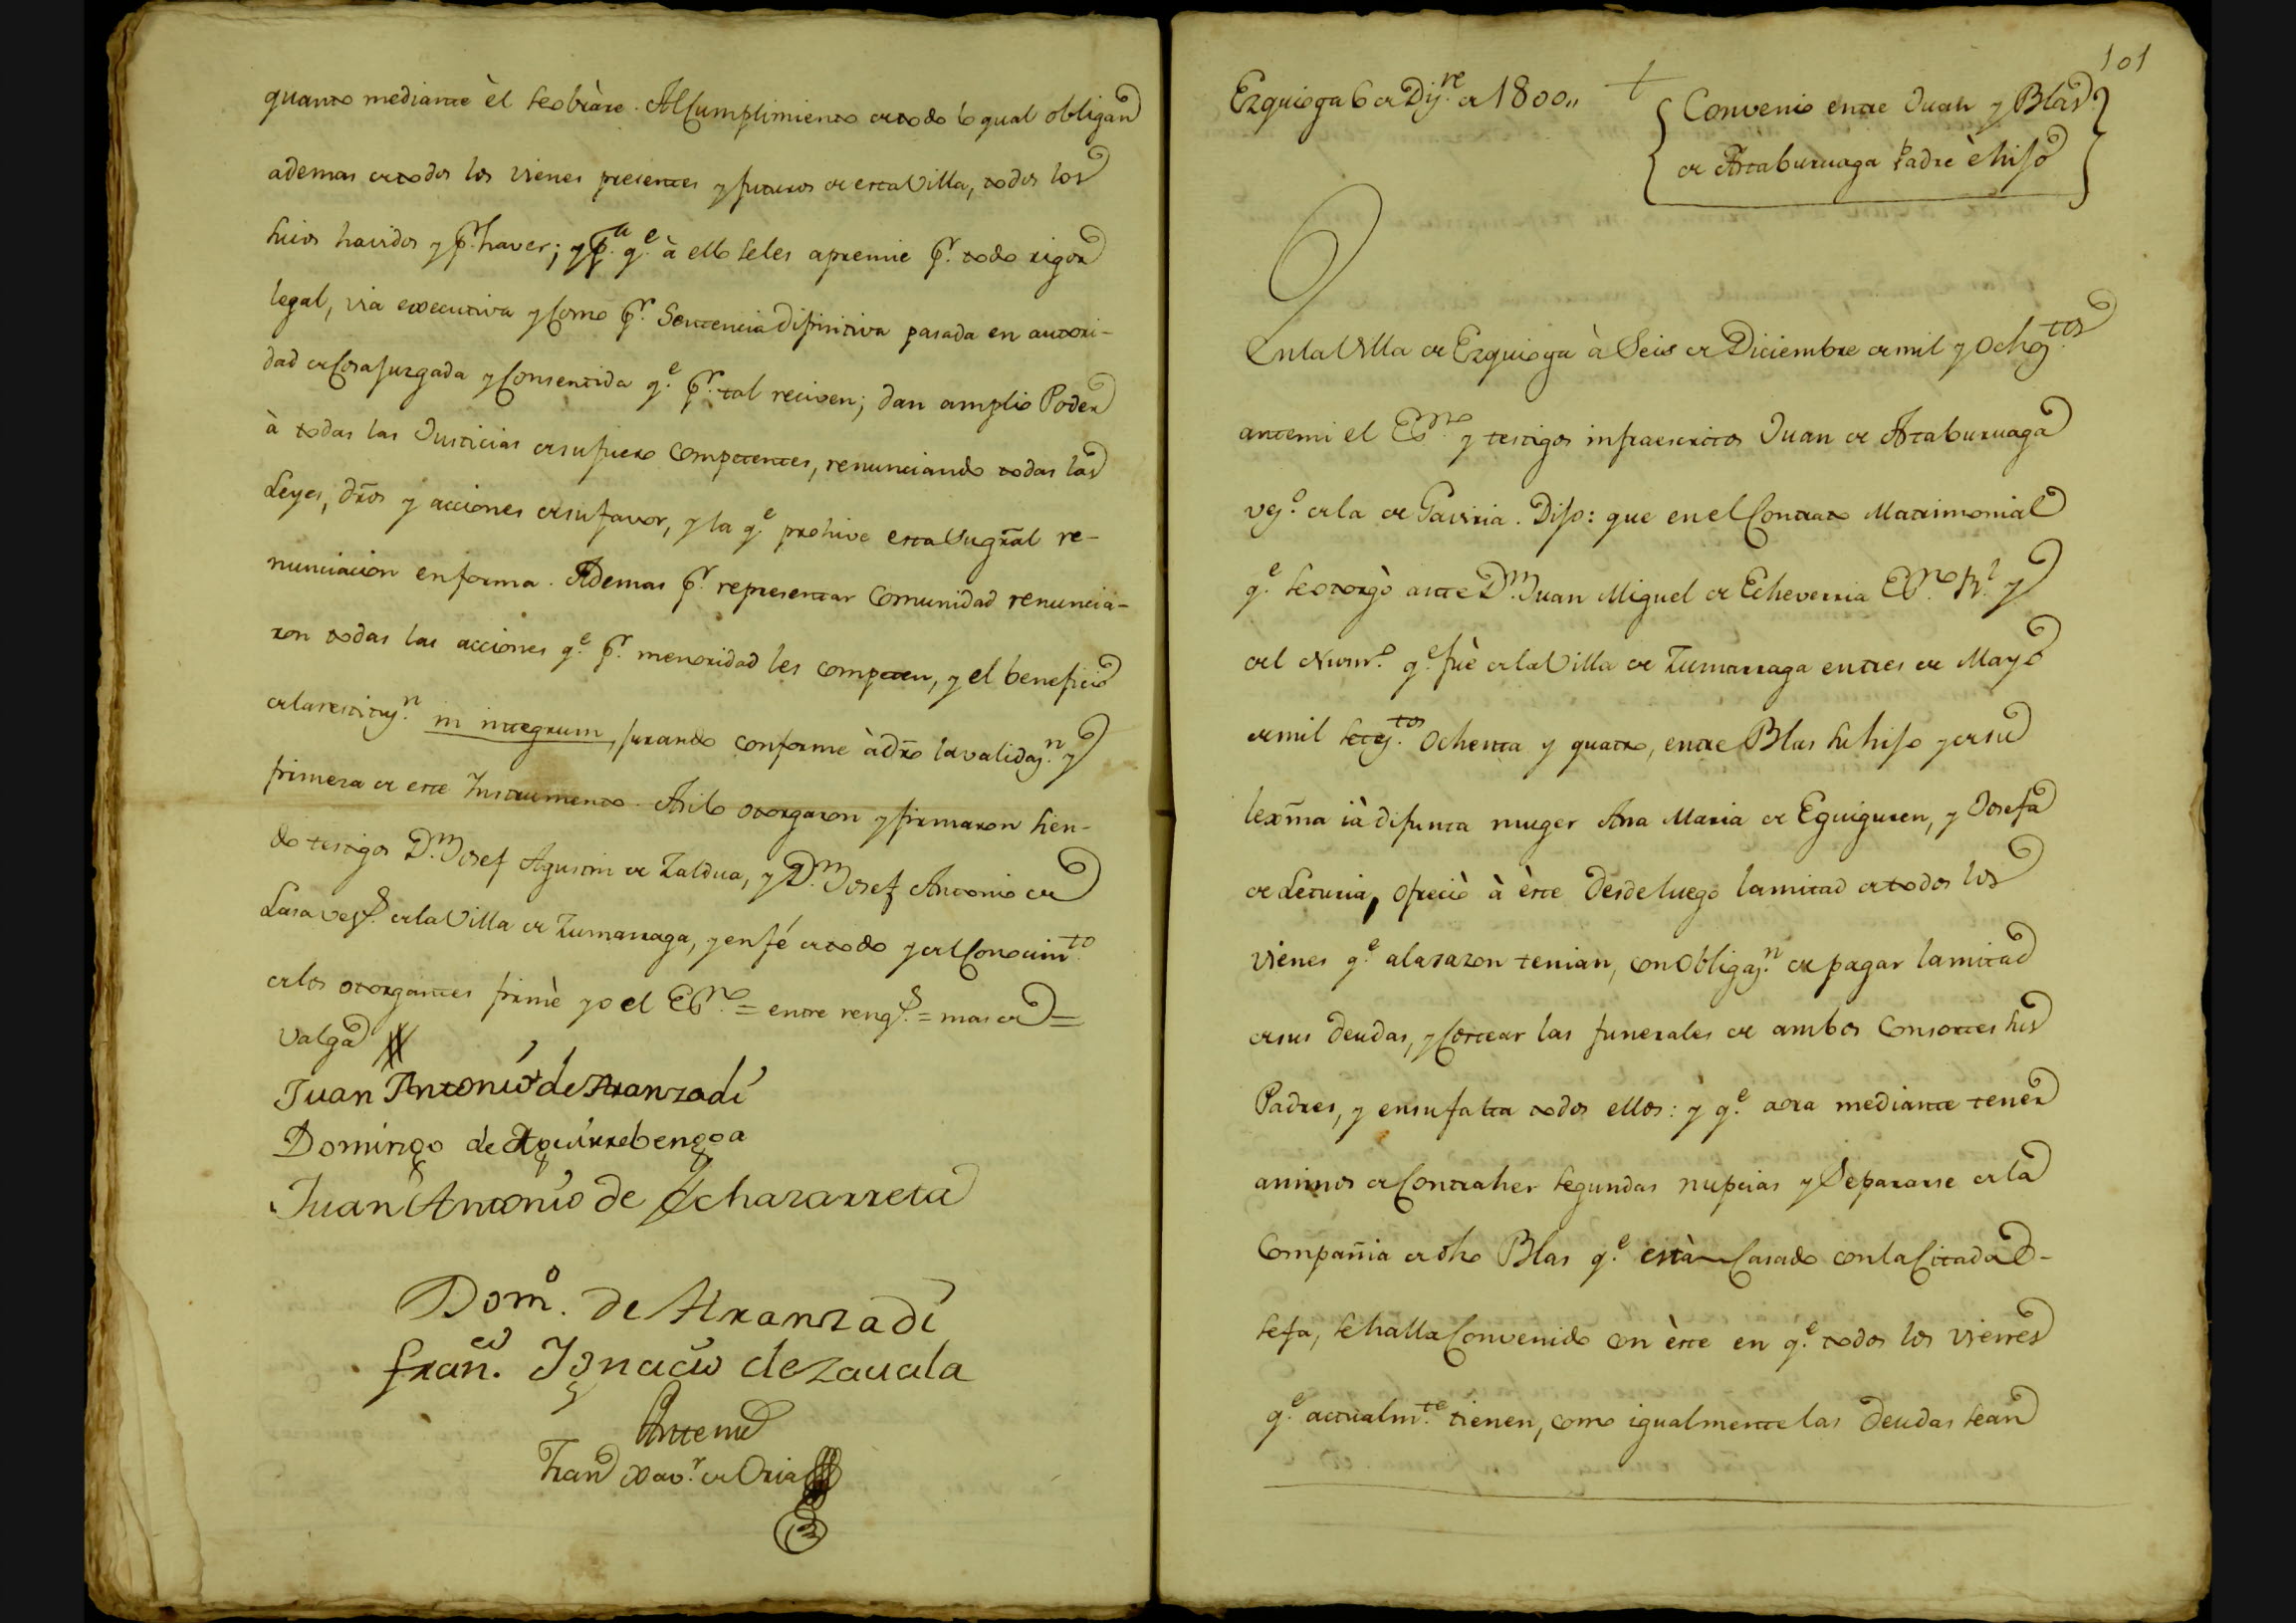 quanto mediante èl se obràre. Al Cumplimiento de todo lo qual obligan
ademas de todos los vienes presentes y futuros de esta Villa, todos los
suios havidos y pr. haver; y pa. qe. à ello se les apremie pr. todo rigor
legal, via executiva y Como pr. Sentencia Difinitiva pasada en autori-
dad de Cosa juzgada y Consentida qe. pr. tal reciven; dan amplio Poder
à todas las Justicias de su fuero Competentes, renunciando todas las
Leyes, dros y acciones de su favor, y la qe. prohive esta Su gral re-
nunciacion en forma. Ademas pr. representar Comunidad renuncia-
ron todas las acciones qe. pr. menoridad les competen, y el beneficio
de la restituzn. in integrum, jurando conforme à dro la validazn. y
firmeza de este Instrumento. Asi lo otorgaron y firmaron sien-
do testigos Dn. Josef Agustin de Zaldua, y Dn. Josef Antonio de
Lasa vezs. de la Villa de Zumarraga, y en fé de todo y del Conocimto.
de los otorgantes firmè yo el Esno. = entre rengs. = mas de =
Valga
Juan Antonio de Aranzadi
Domingo de Aguirrebengoa
Juan Antonio de Echazarreta
Domo. de Aranzadi
Franco. Ignacio de Zauala
Antemi
Fran Xavr. de Oria
101
Ezquioga 6 de Dizre. de 1800,,
Convenio entre Juan y Blas
de Artaburuaga Padre è hijo
En la Villa de Ezquioga à Seis de Diciembre de mil y Ochoztos.
ante mi el Esno. y testigos infraescritos Juan de Artaburuaga
vezo. de la de Gaviria. Dijo: que en el Contrato Matrimonial
qe. se otorgò ante Dn. Juan Miguel de Echeverria Esno. Rl. y
del Numo. qe. fuè de la Villa de Zumarraga en tres de Mayo
de mil seteztos. Ochenta y quatro, entre Blas su hijo y de su
lexma ià difunta muger Ana Maria de Eguiguren, y Josefa
de Leturia, ofreciò à èste desde luego la mitad de todos los
vienes qe. a la sazon tenian, con Obligazn. de pagar la mitad
de sus deudas, y Costear las funerales de ambos Consortes sus
Padres, y en su falta todos ellos: y qe. aora mediante tener
animos de Contraher segundas nupcias y Separarse de la
Compañia de dho Blas qe. està Casado con la Citada Jo-
sefa, se halla Convenido con èste en qe. todos los vienes
qe. actualmte. tienen, como igualmente las deudas sean